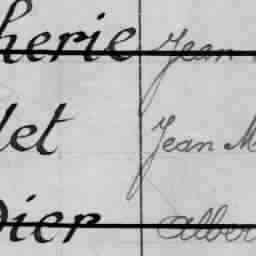 herie Jean
let Jean M
Dier Alber